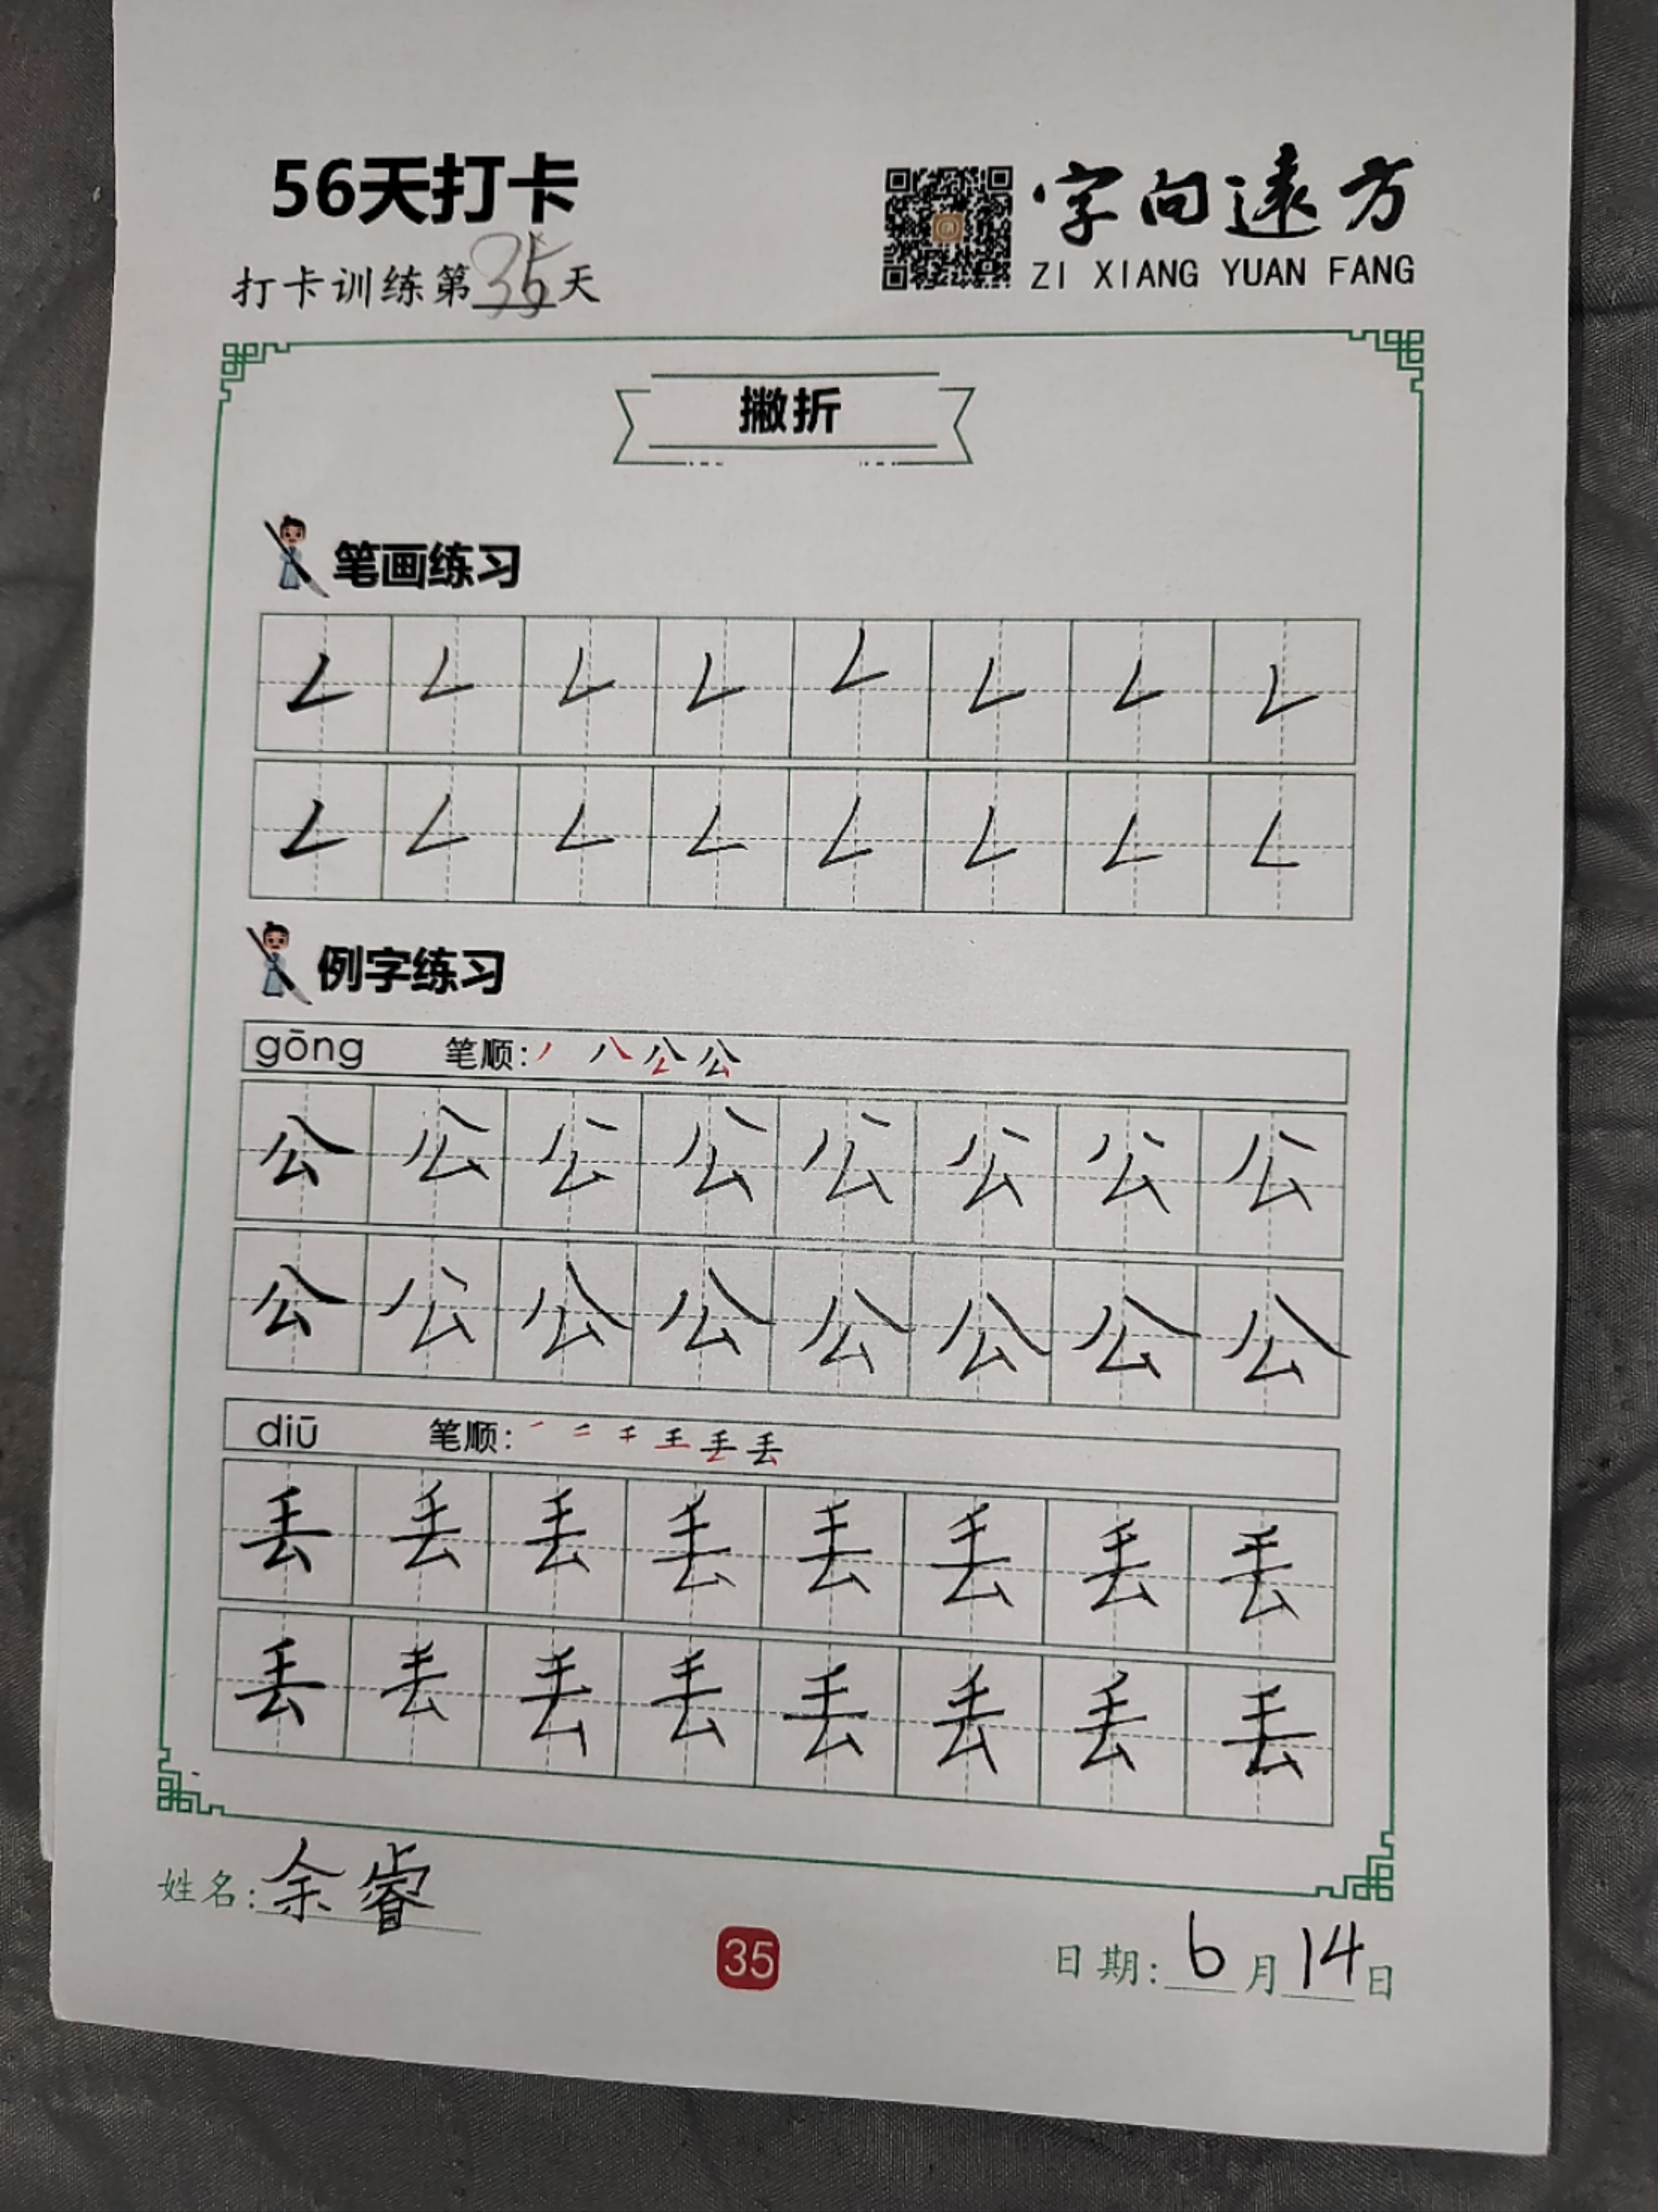 56天打卡
打卡训练第35天
字向远方
ZI XIANG YUAN FANG
撇折
笔画练习
例字练习
gōng 笔顺:丿 八 公 公
公 公 公 公 公 公 公 公
公 公 公 公 公 公 公 公
diū 笔顺:
丢 丢 丢 丢 丢 丢 丢 丢
丢 丢 丢 丢 丢 丢 丢 丢
姓名:余睿
35
日期:6月14日